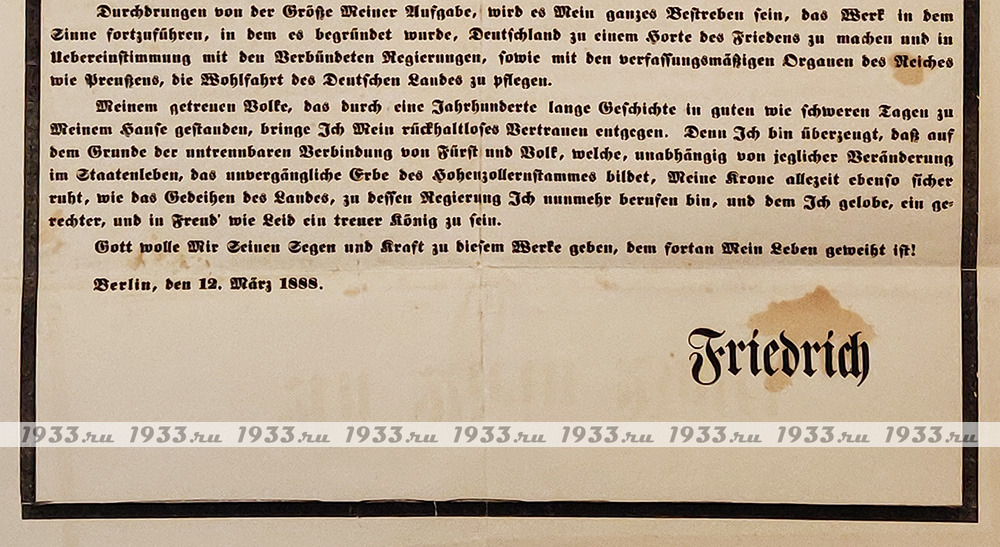 Durchdrungen von der Größe Meiner Aufgabe, wird es Mein ganzes Bestreben sein, das Werk in dem
Sinne fortzuführen, in dem es begründet wurde, Deutschland zu einem Horte des Friedens zu machen und in
Uebereinstimmung mit den Verbündeten Regierungen, sowie mit den verfassungsmäßigen Organen des Reiches
wie Preußens, die Wohlfahrt des Deutschen Landes zu pflegen.
Meinem getreuen Volke, das durch eine Jahrhunderte lange Geschichte in guten wie schweren Tagen zu
Meinem Hause gestanden, bringe Ich Mein rückhaltloses Vertrauen entgegen. Denn Ich bin überzeugt, daß auf
dem Grunde der untrennbaren Verbindung von Fürst und Volk, welche, unabhängig von jeglicher Veränderung
im Staatenleben, das unvergängliche Erbe des Hohenzollernstammes bildet, Meine Krone allezeit ebenso sicher
ruht, wie das Gedeihen des Landes, zu dessen Regierung Ich nunmehr berufen bin, und dem Ich gelobe, ein ge-
rechter, und in Freud' wie Leid ein treuer König zu sein.
Gott wolle Mir Seinen Segen und Kraft zu diesem Werke geben, dem fortan Mein Leben geweiht ist!
Berlin, den 12. März 1888.
Friedrich
1933.ru 1933.ru 1933.ru 1933.ru 1933.ru 1933.ru 1933.ru 1933.ru 1933.ru